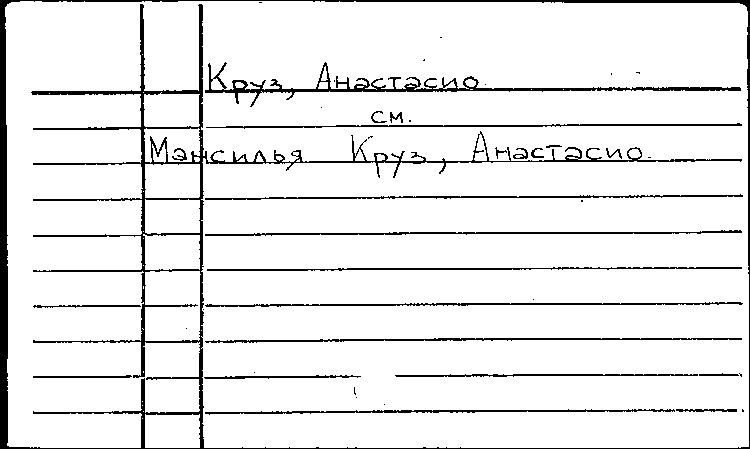 Круз, Анастасио
см.
Мансилья Круз, Анастасио.